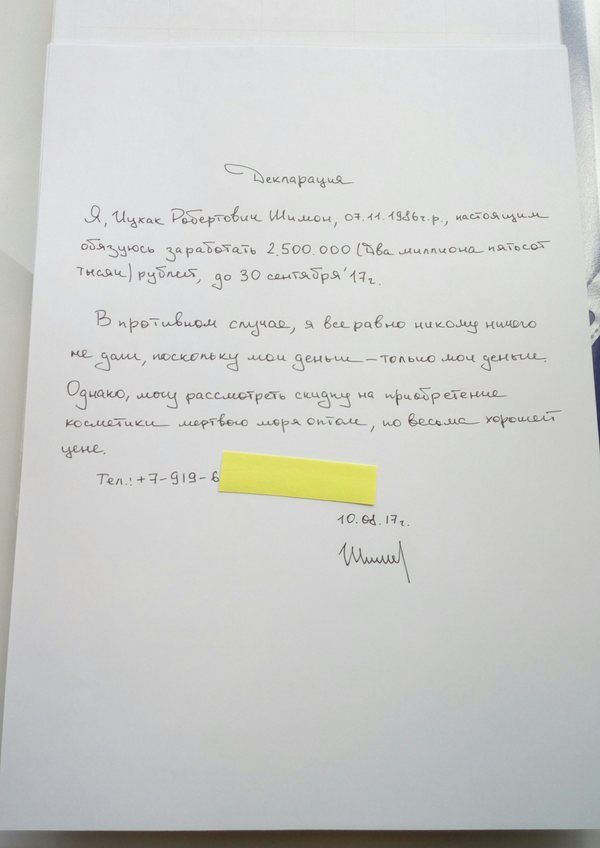 Декларация
Я, Ицхак Робертович Шимон, 07.11.1986г.р., настоящим
обязуюсь заработать 2.500.000 (Два миллиона пятьсот
тысяч) рублей, до 30 сентября'17г.
В противном случае, я все равно никому ничего
не дам, поскольку мои деньги – только мои деньги.
Однако, могу рассмотреть скидку на приобретение
косметики мертвого моря оптом, по весьма хорошей
цене.
Тел.: +7-919-6
10.08.17г.